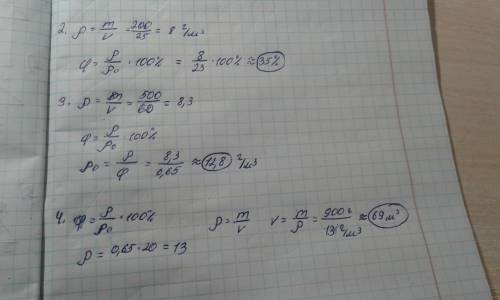 2. ρ = m/V = 200/25 = 8 г/м3
φ = ρ/ρ0 · 100% = 8/23 · 100% ≈ 35%
3. ρ = m/V = 500/60 = 8,3
φ = ρ/ρ0 100%
ρ0 = ρ/φ = 8,3/0,65 ≈ 12,8 г/м3
4. φ = ρ/ρ0 · 100% ρ = m/V V = m/ρ = 900г/13 г/м3 ≈ 69 м3
ρ = 0,65 · 20 = 13